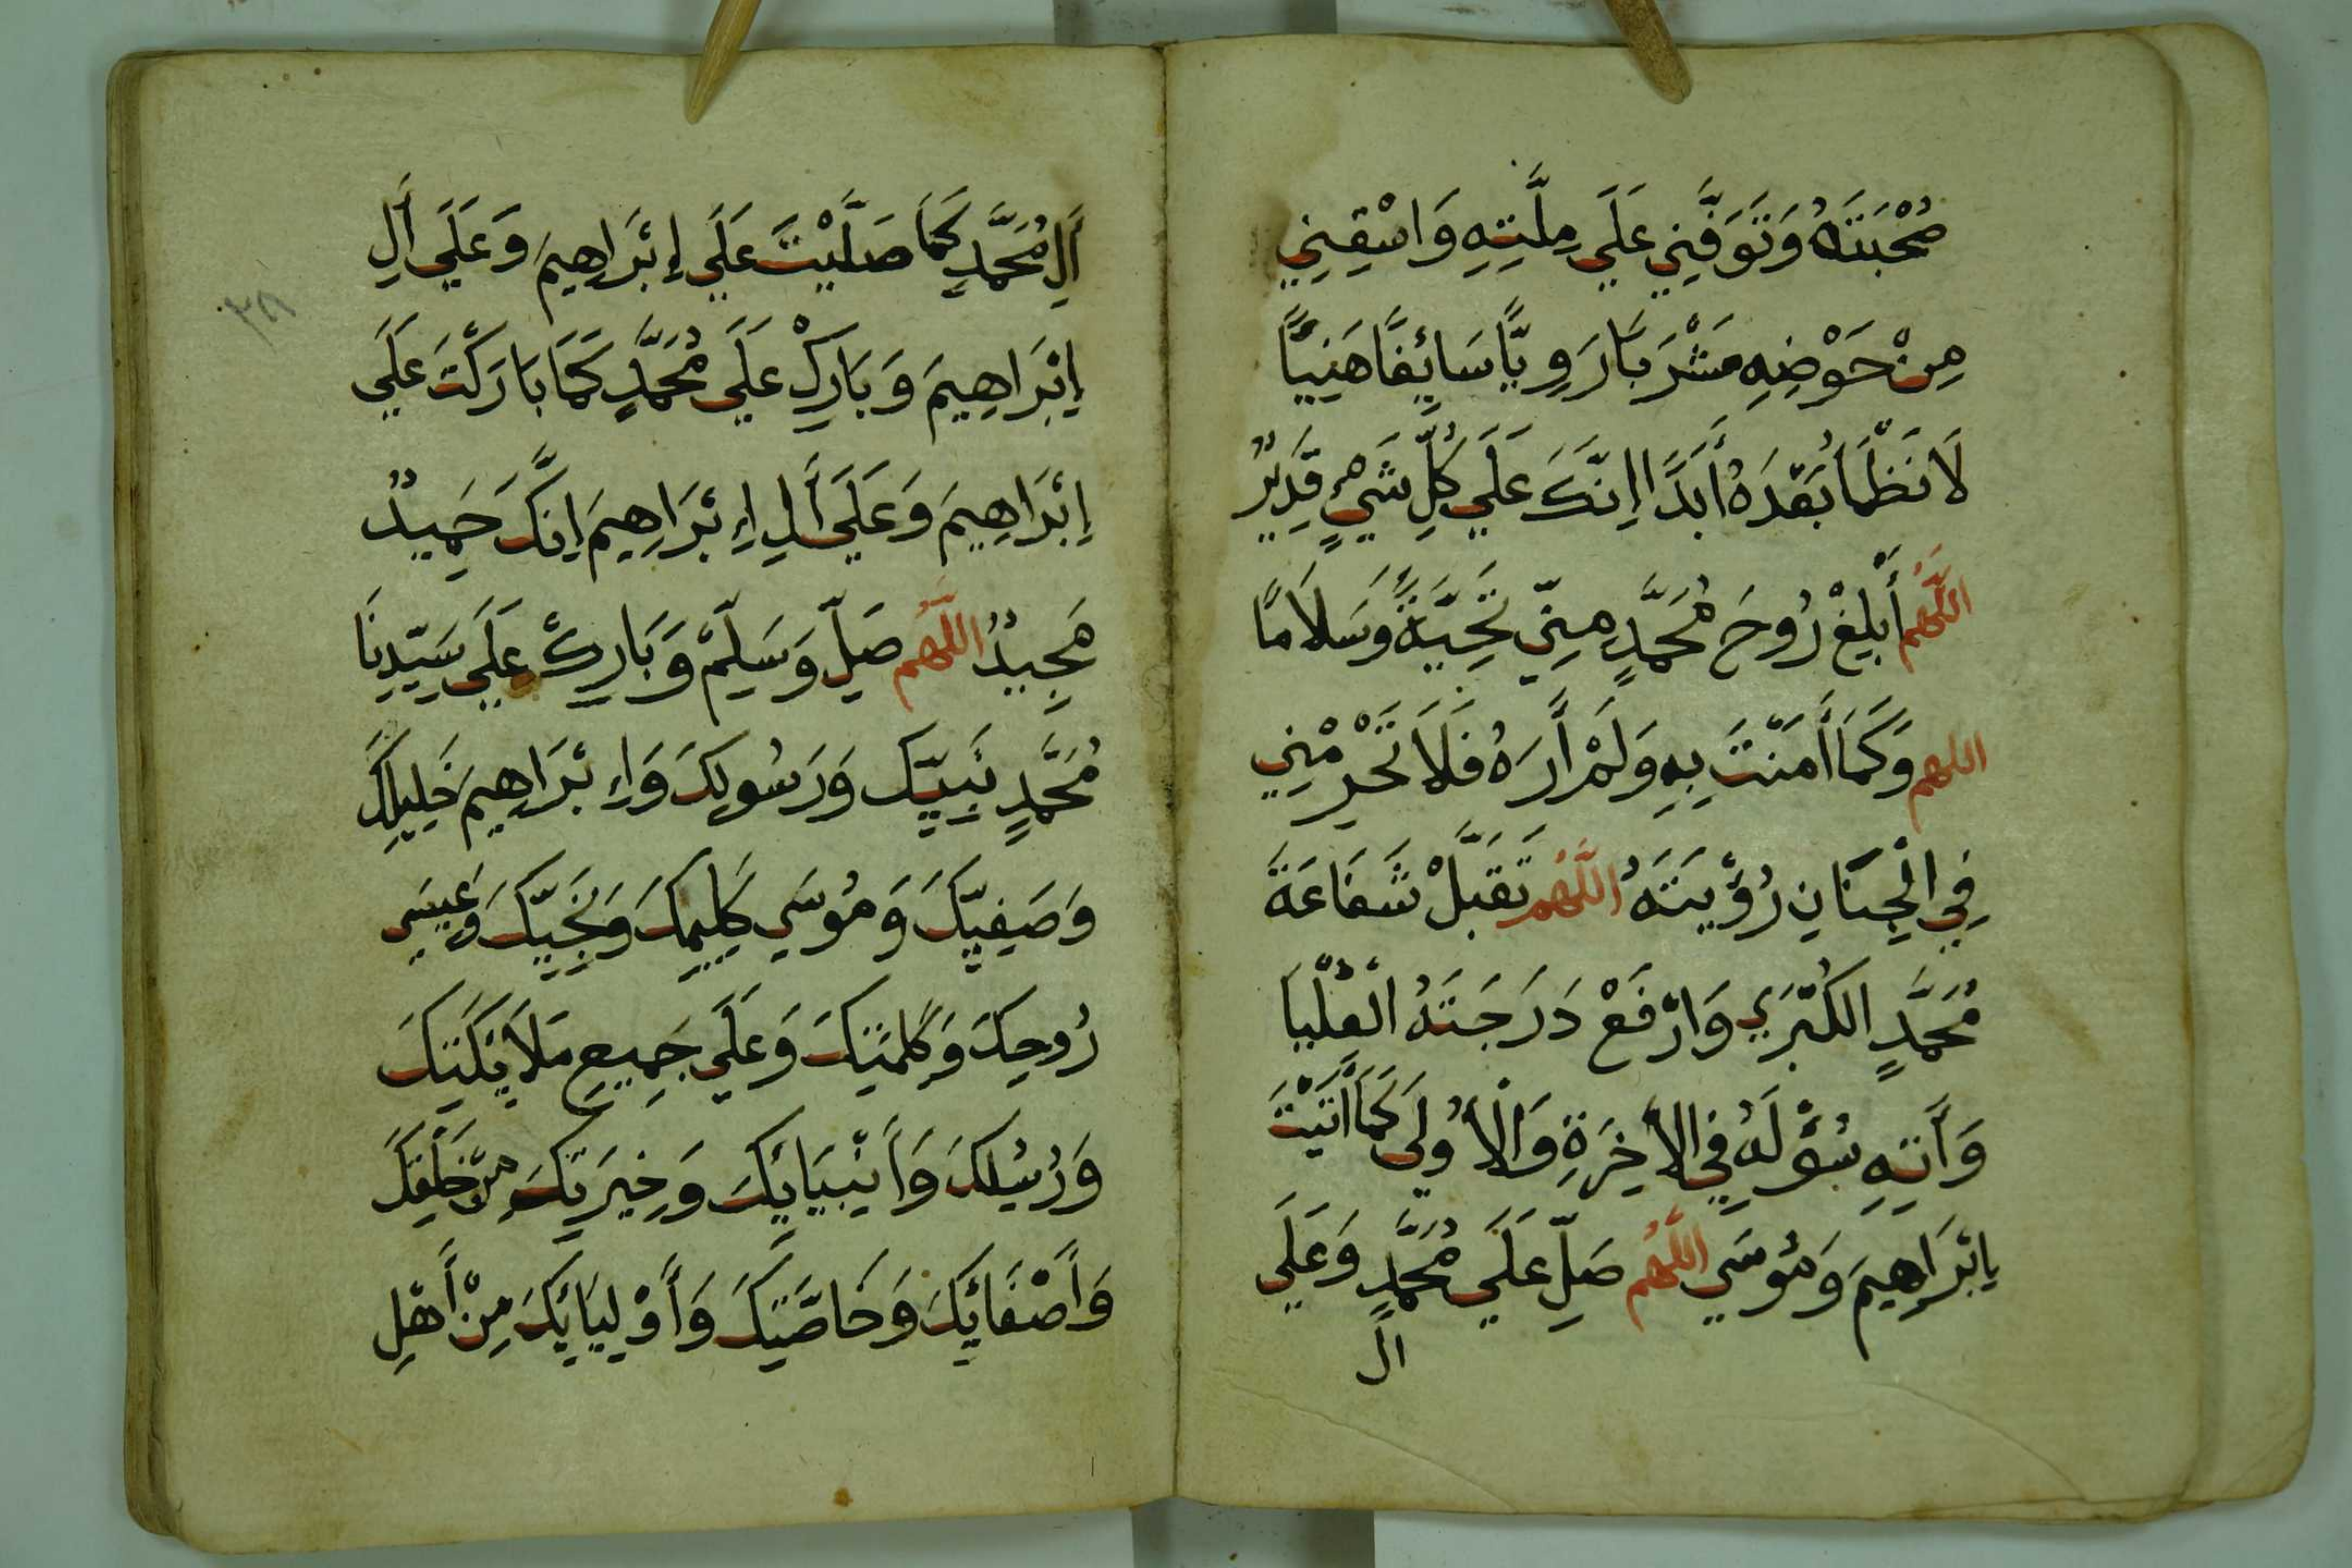 صُحْبَتَهُ وَتَوَفَّنِي عَلَي مِلَّتِهِ وَاسْقِنِي
مِنْ حَوْضِهِ مَشْرَبًا رَوِيًّا سَائِغًا هَنِيًّا
لَا نَظْمَأُ بَعْدَهُ أَبَدًا اِنَّكَ عَلَي كُلِّ شَيْءٍ قَدِيرٌ
اللَّهُمَّ أَبْلِغْ رُوحَ مُحَمَّدٍ مِنِّي تَحِيَّةً وَسَلَامًا
اللهم وَكَمَا أَمَنْتُ بِهِ وَلَمْ أَرَهُ فَلَا تَحْرِمْنِي
فِي الْجِنَانِ رُؤْيَتَهُ اللَّهُمَّ تَقَبَّلْ شَفَاعَةَ
مُحَمَّدٍ الكُبْرَي وَارْفَعْ دَرَجَتَهُ الْعُلْيَا
وَأَتِهِ سُؤْلَهُ فِي الأَخِرَةِ وَالْأُولَي كَمَا أَتَيْتَ
اِبْرَاهِيمَ وَمُوسَي اللَّهُمَّ صَلِّ عَلَي مُحَمَّدٍ وَعَلَي
اَلِ
أَلِ مُحَمَّدٍ كَمَا صَلَّيْتَ عَلَي إِبْرَاهِيمَ وَعَلَي أَلِ
اِبْرَاهِيمَ وَبَارِكْ عَلَي مُحَمَّدٍ كَمَا بَارَكْتَ عَلَي
اِبْرَاهِيمَ وَعَلَي أَلِ اِبْرَاهِيمَ اِنَّكَ حَمِيدٌ
مَجِيدٌ اللَّهُمَّ صَلِّ وَسَلِّمْ وَبَارِكْ عَلَي سَيِّدِنَا
مُحَمَّدٍ نَبِيِّكَ وَرَسُولِكَ وَاِبْرَاهِيمَ خَلِيلِكَ
وَصَفِيِّكَ وَمُوسَي كَلِيمِكَ وَنَجِيِّكَ وَعِيسَي
رُوحِكَ وَكَلِمَتِكَ وَعَلَي جَمِيعِ مَلَائِكَتِكَ
وَرُسُلِكَ وَأَنْبِيَائِكَ وَخِيَرَتِكَ مِنْ خَلْقِكَ
وَأَصْفَائِكَ وَخَاصَّتِكَ وَأَوْلِيَائِكَ مِنْ أَهْلِ